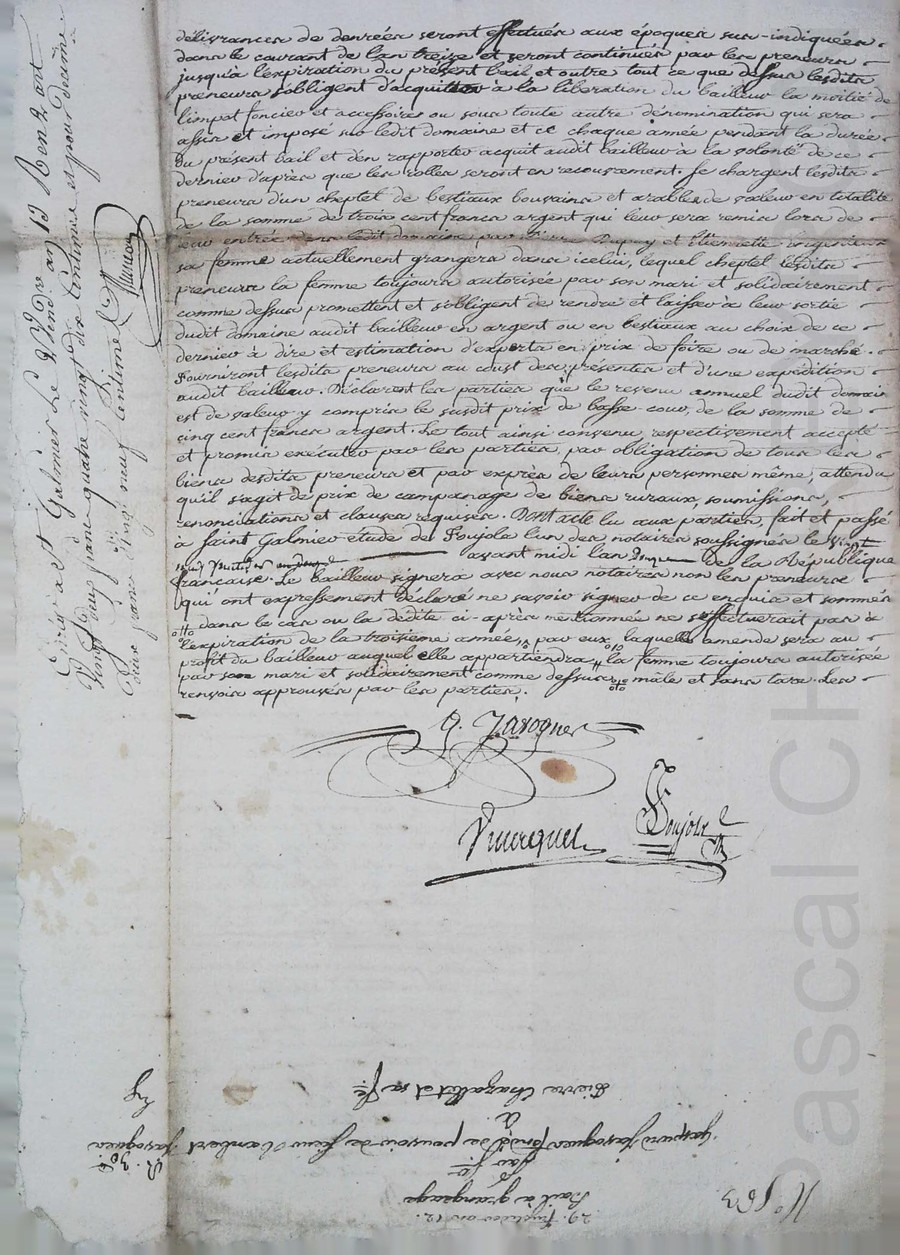 délivrances de denrées seront effectuées aux époques sus-indiquées
dans le courant de l'an treize et seront continuées par les preneurs
jusqu'à l'expiration du présent bail et outre tout ce que dessus lesdits
preneurs s'obligent d'acquitter à la libération du bailleur la moitié de
l'impot foncier et accessoires ou sous toute autre dénomination qui sera
assis et imposé sur ledit domaine et ce chaque année pendant la durée
du présent bail et d'en rapporter acquit audit bailleur à la volonté de ce
dernier d'après que les rolles seront en recouvrement. Se chargent lesdits
preneurs d'un cheptel de bestiaux bouvains et arables de valeur en totalité
de la somme de trois cent francs argent qui leur sera remis lors de
leur entrée dans ledit domaine par Pierre Dupuy et Etiennette
sa femme actuellement grangers dans icelui, lequel cheptel lesdits
preneurs la femme toujours autorisée par son mari et solidairement
comme dessus promettent et s'obligent de rendre et laisser à leur sortie
dudit domaine audit bailleur en argent ou en bestiaux au choix de ce
dernier à dire et estimation d'experts en prix de foire ou de marché.
Fourniront lesdits preneurs au coust des présentes et d'une expédition
audit bailleur. Déclarent les parties que le revenu annuel dudit domaine
est de valeur y compris le susdit prix de basse-cour, de la somme de
cinq cent francs argent. Le tout ainsi convenu respectivement accepté
et promis exécuter par les parties, par obligation de tous les
biens desdits preneurs et par exprès de leurs personnes même, attendu
qu'il s'agit de prix de campanage de biens ruraux, soumissions,
renonciations et clauses requises. Dont acte lu aux parties, fait et passé
à Saint Galmier étude de Poujola l'un des notaires soussignés le vingt
neuf fructidor avant midi l'an douze de la République
française. Le bailleur signera avec nous notaires non les preneurs
qu'ont expressément déclaré ne savoir signer de ce enquis et sommés
dans le cas ou la dédite ci-après mentionnée ne s'effectuerait pas à
l'expiration de la troisième année, par eux, laquelle amende sera au
profit du bailleur auquel elle appartiendra, la femme toujours autorisée
par son mari et solidairement comme dessus, mâle et sans tare. Les
renvois approuvés par les parties.
G. Javogues
Poujola
Enregistré à St Galmier Le 2 Vendre an 13 Reçu
vingt deux francs quatre vingt dix centimes et pour décime
deux francs vingt neuf centimes
29. fructidor an 12.
Bail à grangeage
par Sr
Gaspard Javogues fondé de pouvoir de Sieur Rambert Javogues
à
Pierre Chazallet et sa fe
No 563